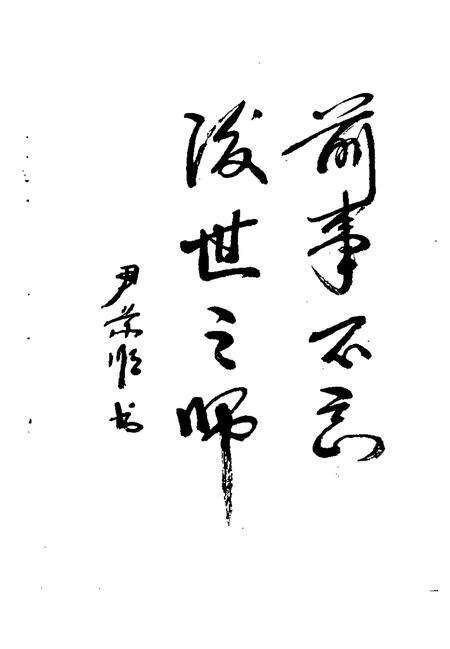 前事不忘
後世之師
尹 书